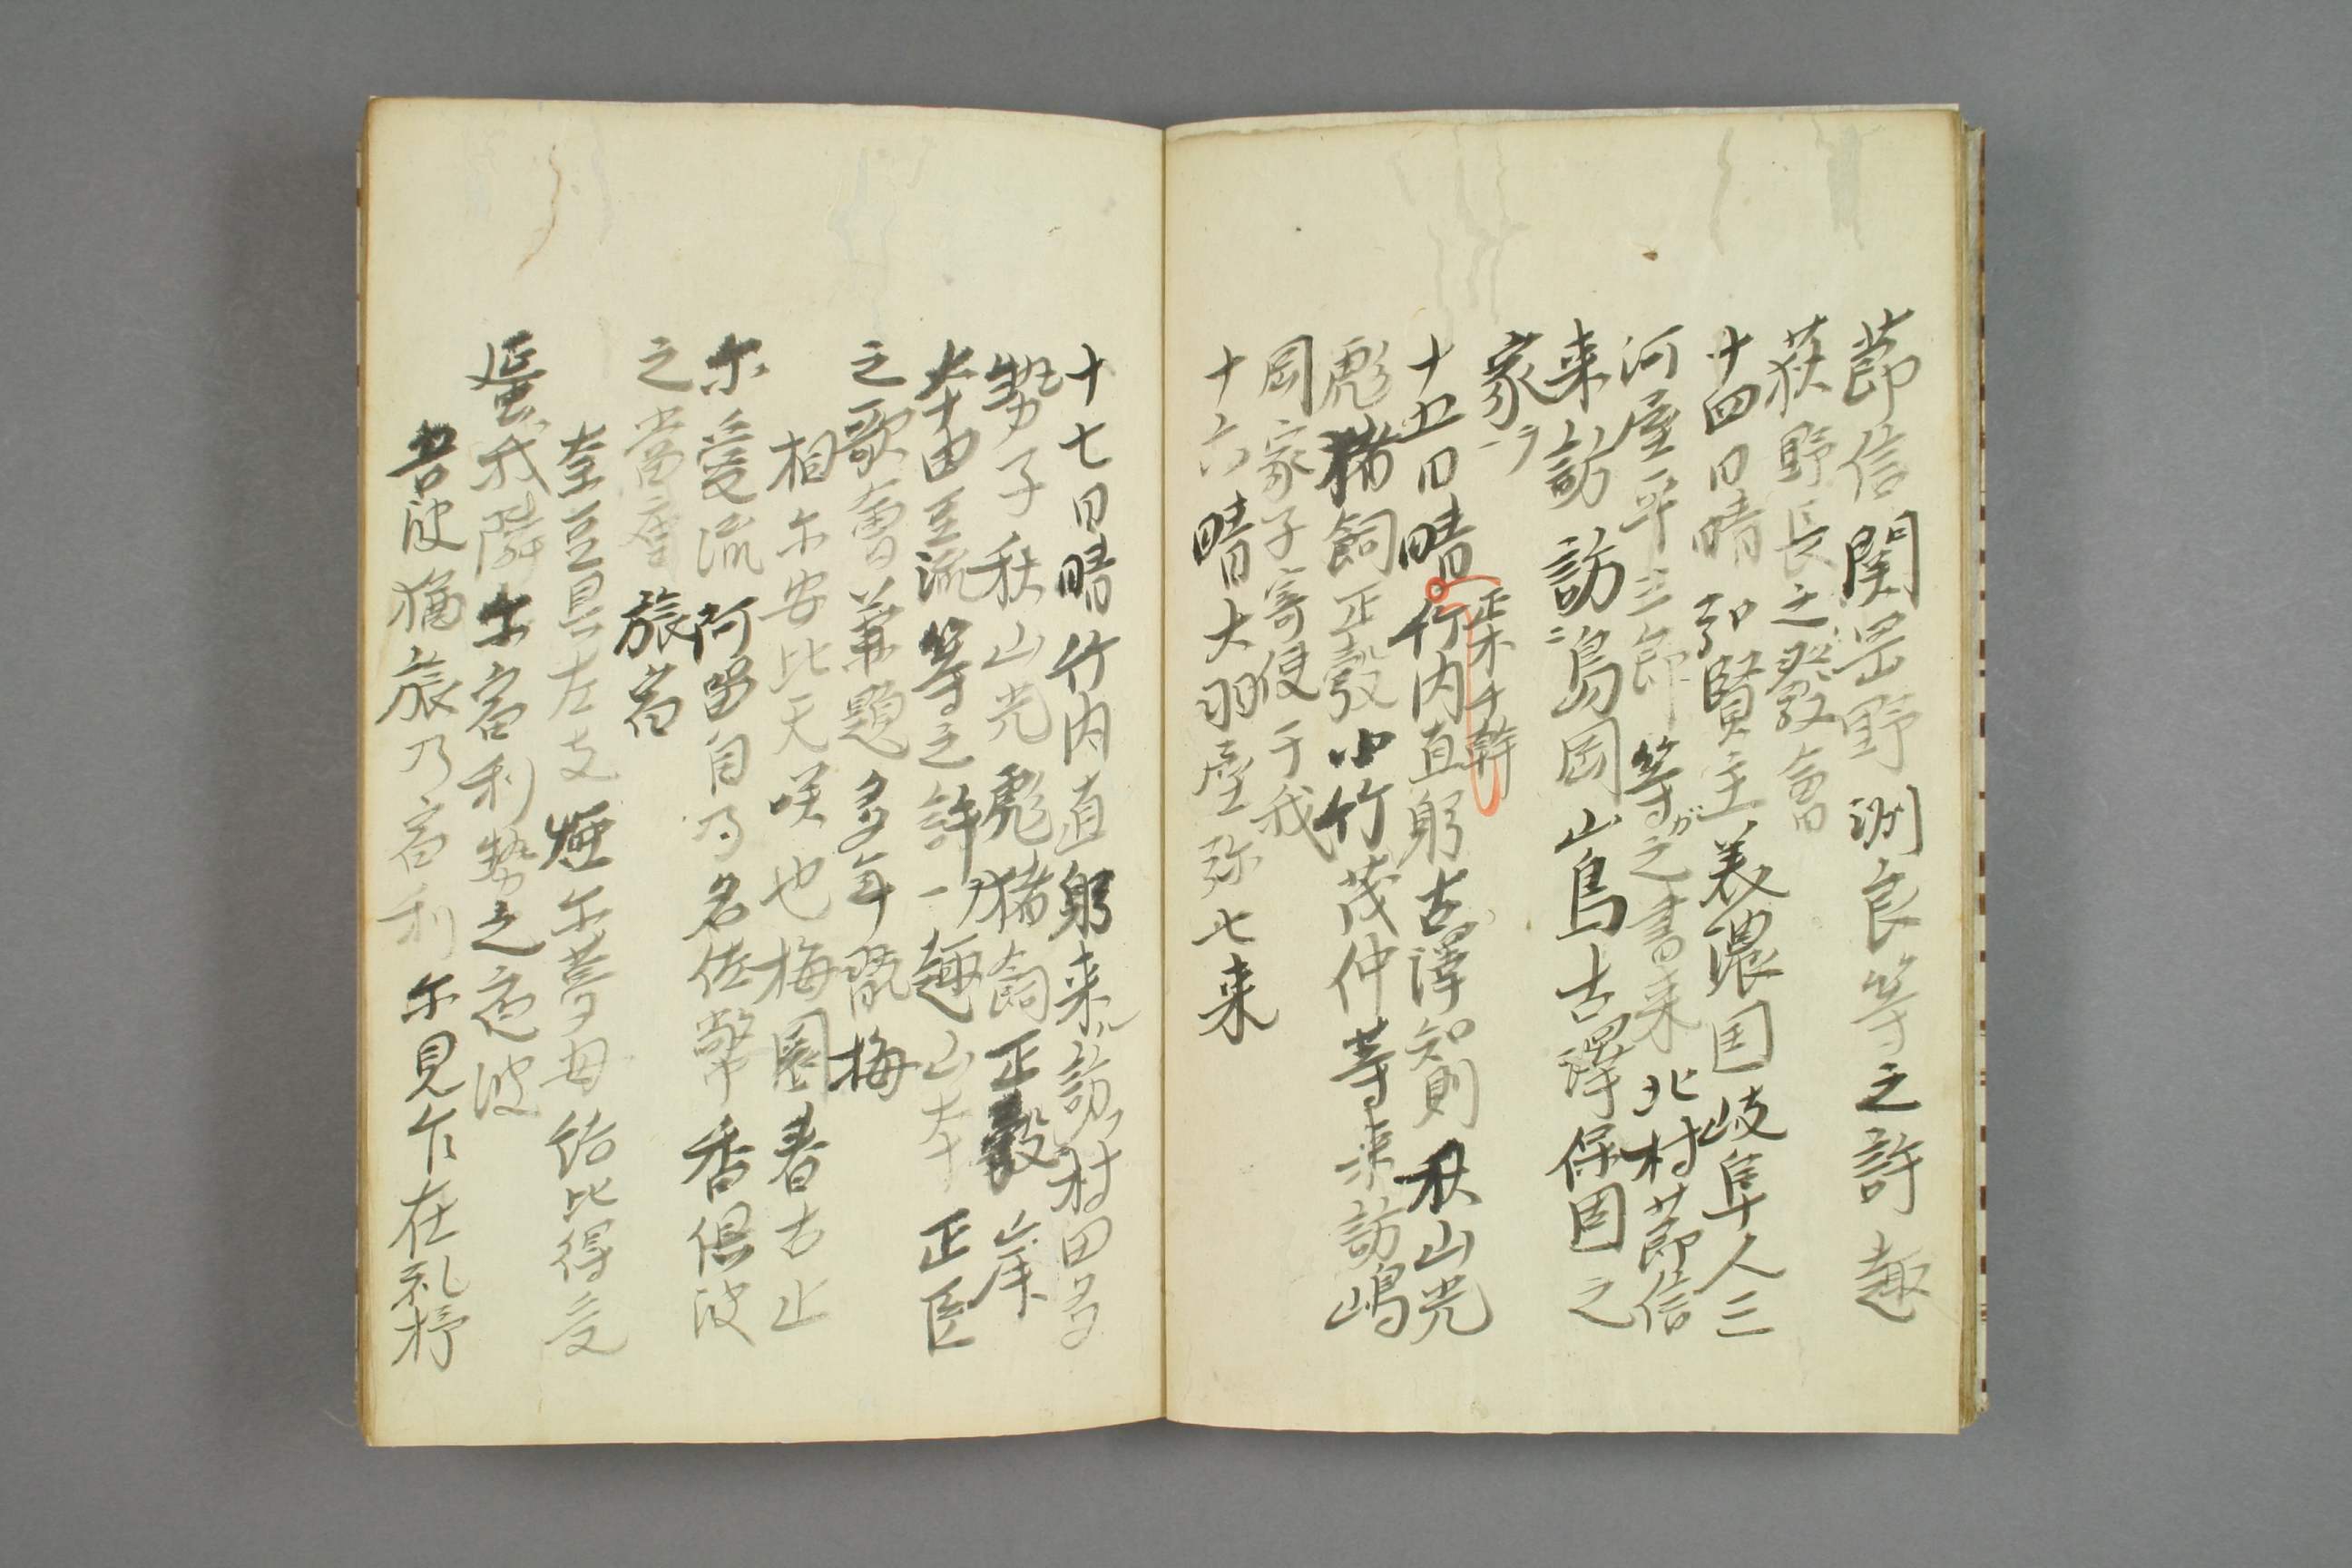 節信関岡野洲良等之許趣
荻野長之發會
十四日晴弘賢主美濃国岐阜人三
河屋平三郎等ガ之書来北村節信
来訪訪嶋岡山鳥古澤保固之
家ヲ
正木千幹
十五日晴竹内直躬古澤知則秋山光
彪猪飼正彀小竹茂仲等来訪嶋
岡家子寄使于我
十六晴大羽屋弥七来
十七日晴竹内直躬来訪村田多
勢子秋山光彪猪飼正彀岸
本由豆流等之許趣山本正臣
之歌會兼題多年翫梅
相尓安比天咲也梅園春古止
尓愛流阿留自乃名佐幣香倶波
之當座旅宿
奎豆具左支煙尓夢毋結比得受
蜑我隣尓宿利勢之夜波
昔波猶旅乃宿利尓見乍在礼杼